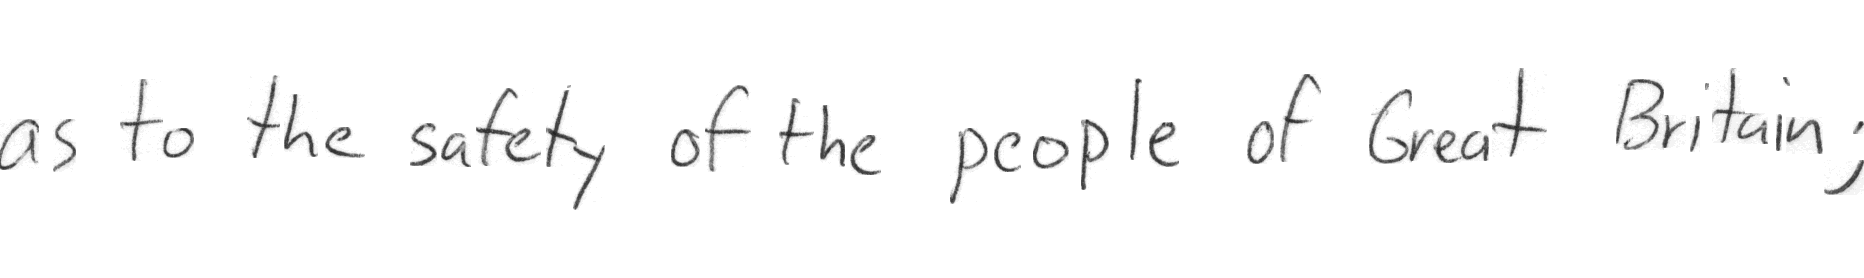 as to the safety of the people of Great Britain;